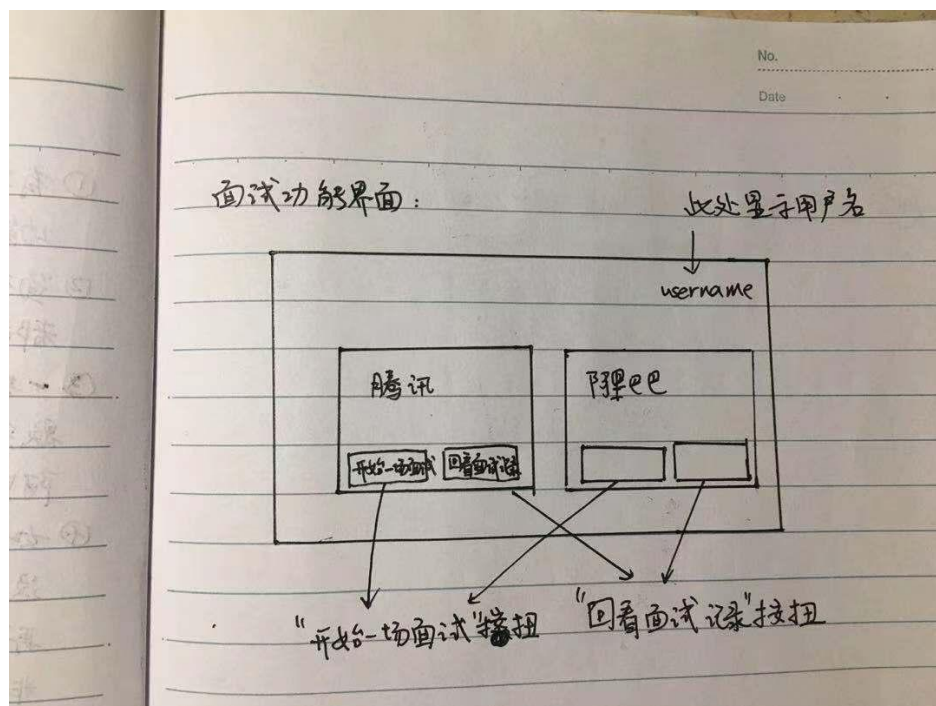 No.
Date
面试功能界面:
此处显示用户名
username
腾讯
阿里巴巴
开始一场面试
回看面试记录
"开始一场面试"按扭
"回看面试记录"按扭